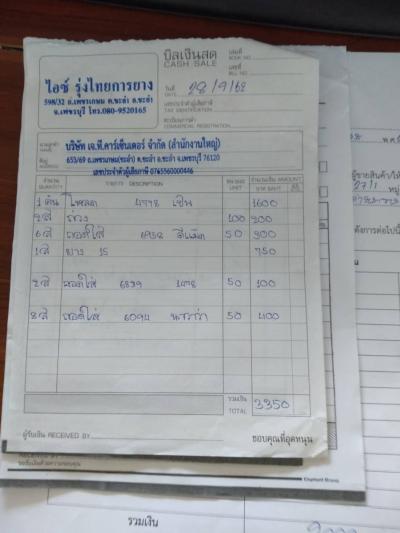 บิลเงินสด
CASH SALE
เล่มที่
BOOK NO.
เลขที่
BILL NO.
ไอซ์ รุ่งไทยการยาง
598/32 ถ.เพชรเกษม ต.ชะอำ อ.ชะอำ
จ.เพชรบุรี โทร.080-9520165
วันที่ DATE 28/9/68
เลขประจำตัวผู้เสียภาษี
TAX IDENTIFICATION
ทะเบียนการค้า
COMMERCIAL REGISTRATION
นามลูกค้า บริษัท เจ.ที.คาร์เซ็นเตอร์ จำกัด (สำนักงานใหญ่)
ที่อยู่ 653/69 ถ.เพชรเกษม(ชะอำ) ต.ชะอำ อ.ชะอำ จ.เพชรบุรี 76120
เลขประจำตัวผู้เสียภาษี 0765560000446
จำนวน QUANTITY รายการ DESCRIPTION หน่วยละ UNIT จำนวนเงิน AMOUNT
1 คัน 4778 1600
2 เส้น 100 200
6 เส้น ถอดใส่ 6938 50 300
1 เส้น ยาง 15 750
2 เส้น ถอดใส่ 6839 50 100
8 เส้น ถอดใส่ 6094 50 400
รวมเงิน
TOTAL 3350
ผู้รับเงิน RECEIVED BY
ขอบคุณที่อุดหนุน
Elephant Brand
รวมเงิน